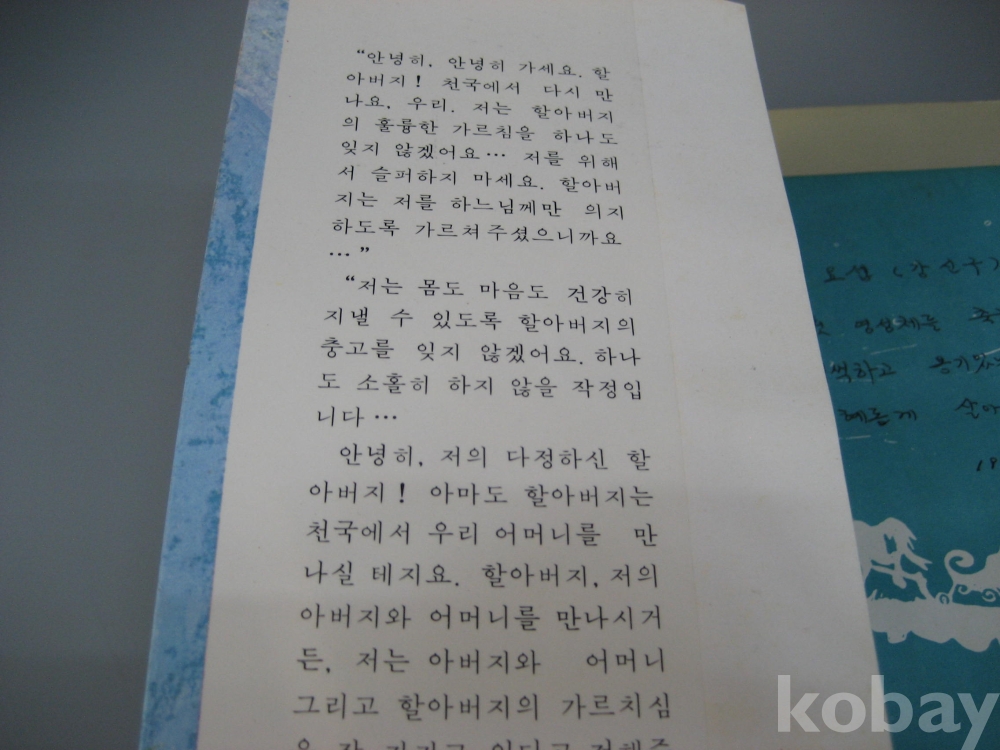 “안녕히, 안녕히 가세요. 할
아버지! 천국에서 다시 만
나요, 우리. 저는 할아버지
의 훌륭한 가르침을 하나도
잊지 않겠어요… 저를 위해
서 슬퍼하지 마세요. 할아버
지는 저를 하느님께만 의지
하도록 가르쳐주셨으니까요
…”
“저는 몸도 마음도 건강히
지낼 수 있도록 할아버지의
충고를 잊지 않겠어요. 하나
도 소홀히 하지 않을 작정입
니다…
안녕히, 저의 다정하신 할
아버지! 아마도 할아버지는
천국에서 우리 어머니를 만
나실 테지요. 할아버지, 저의
아버지와 어머니를 만나시거
든, 저는 아버지와 어머니
그리고 할아버지의 가르치심
요셉 (강신구)
영성체를
하고 용기있
살아
19
kobay